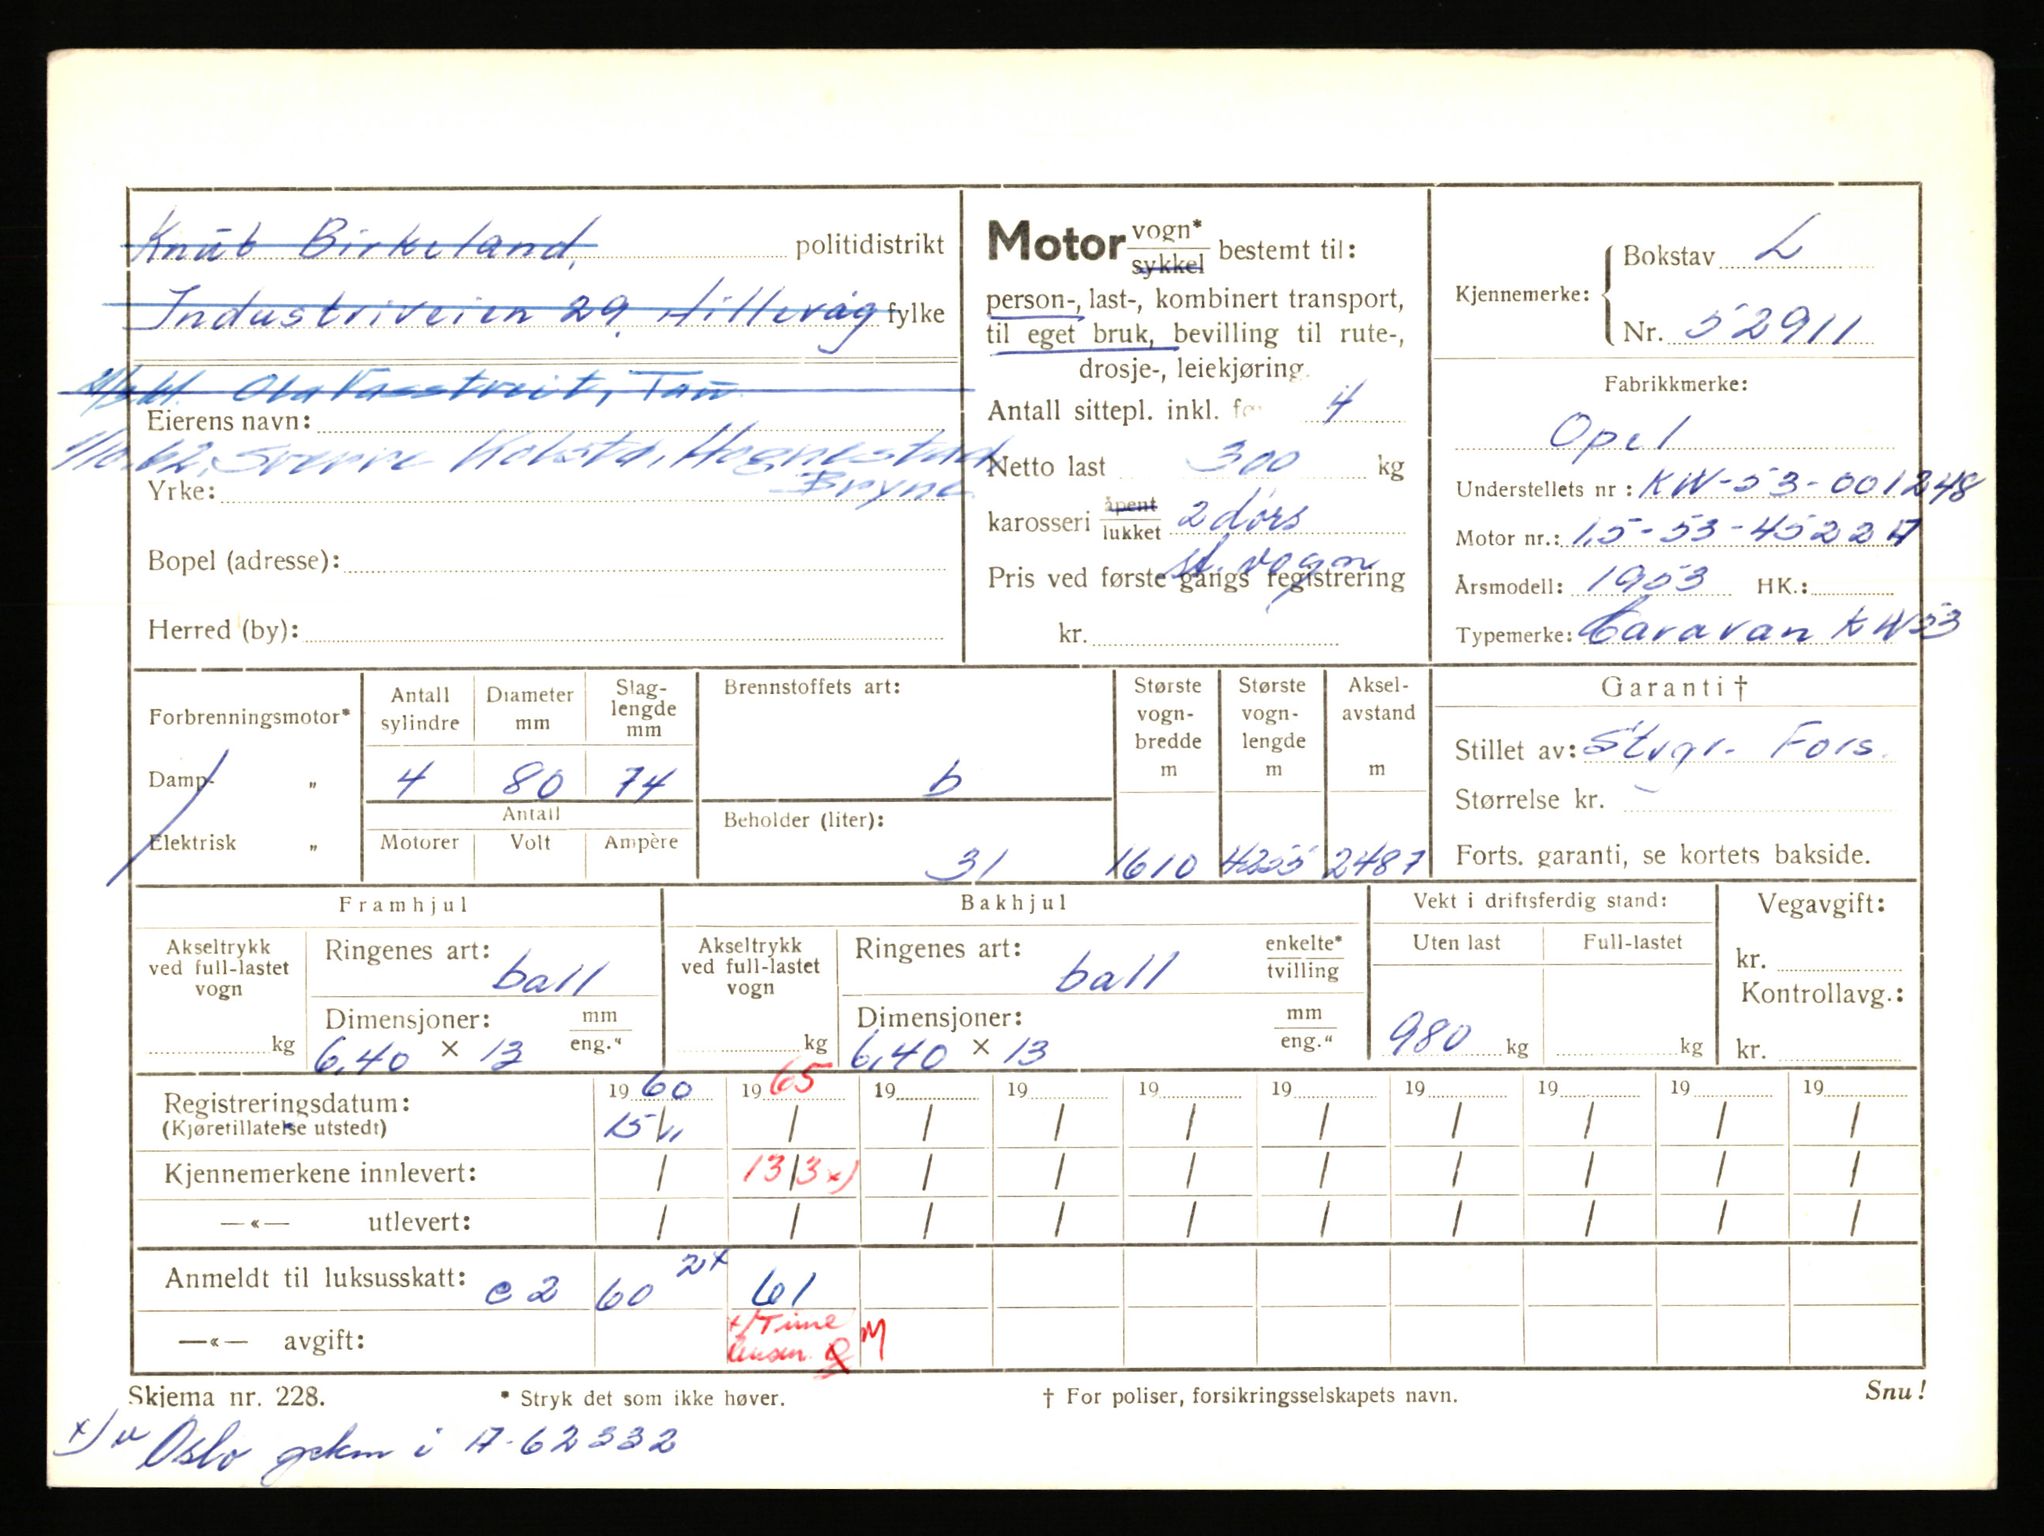 Knut Birkeland, politidistrikt
Industriveien 29, Hillevåg fylke
Eierens navn:
Sverre Kolstø, Hognestad
Yrke: Bryne
Bopel (adresse):
Herred (by):
Motor vogn* sykkel bestemt til:
person-, last-, kombinert transport,
til eget bruk, bevilling til rute-,
drosje-, leiekjøring.
Antall sittepl. inkl. 4
Netto last 300 kg
karosseri åpent lukket 2 dørs
st. vogn
Pris ved første gangs registrering
kr.
Kjennemerke: Bokstav L
Nr. 52911
Fabrikkmerke:
Opel
Understellets nr: KW-53-001248
Motor nr.: 1,5-53-4522 A
Årsmodell: 1953 HK.:
Typemerke: Caravan KW53
Forbrenningsmotor*
Damp- „
Elektrisk „
Antall sylindre 4
Diameter mm 80
Slaglengde mm 74
Antall
Motorer Volt Ampère
Brennstoffets art:
b
Beholder (liter):
31
Største vognbredde m 1610
Største vognlengde m 4255
Akselavstand m 2487
Garanti †
Stillet av: Stvgr. Fors.
Størrelse kr.
Forts. garanti, se kortets bakside.
Framhjul
Akseltrykk ved full-lastet vogn kg
Ringenes art: ball
Dimensjoner: mm eng."
6,40 × 13
Bakhjul
Akseltrykk ved full-lastet vogn kg
Ringenes art: ball enkelte* tvilling
Dimensjoner: mm eng."
6,40 × 13
Vekt i driftsferdig stand:
Uten last Full-lastet
980 kg kg
Vegavgift:
kr.
Kontrollavg.:
kr.
19 60 19 65 19 19 19 19 19 19 19 19
Registreringsdatum: 15/11 / / / / / / / / /
(Kjøretillatelse utstedt)
Kjennemerkene innlevert: / 13/3 x) / / / / / / / /
—«— utlevert: / / / / / / / / / /
Anmeldt til luksusskatt: c 2 60 2x 61
—«— avgift: x) Time M
Skjema nr. 228. * Stryk det som ikke høver. † For poliser, forsikringsselskapets navn. Snu!
x) Oslo gjekm i A-62332